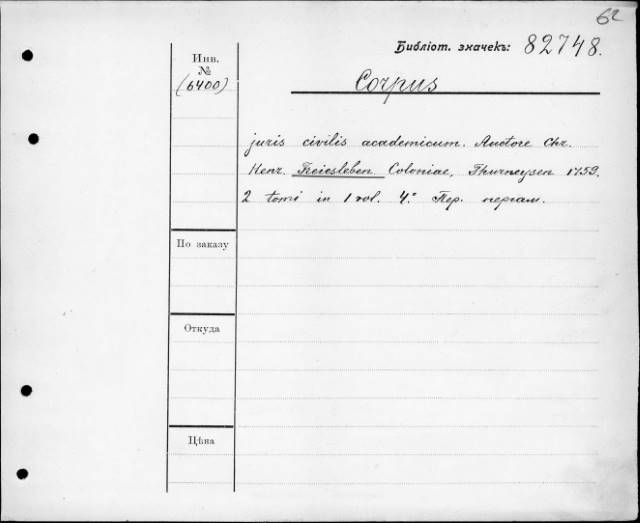 62
Библіот. значекъ: 82748.
Инв.
№
(6400)
Corpus
juris civilis academicum. Auctore Chr.
Henr. Freiesleben Coloniae, Thurneysen 1759.
2 tomi in 1 vol. 4.° Пер. пергам.
По заказу
Откуда
Цѣна